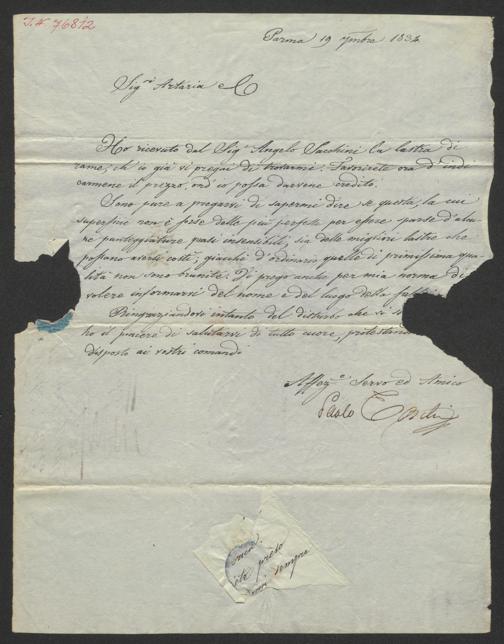 I.N. 76812
Parma 19 9mbre 1834
Sig.ri Artaria e C
Ho ricevuto dal Sig.r Angelo Sacchini la lastra di
rame, ch'io già vi pregai di trovarmi. Favorirete ora d'indi
carmene il prezzo, ond'io possa darvene credito.
Sono pure a pregarvi di sapermi dire se questa, la cui
superficie non è forse delle più perfette per essere sparsa d'alcu
ne punteggiature quasi insensibili, sia delle migliori lastre che
possano aversi costì; giacchè d'ordinario quelle di primissima qua
lità non sono brunite. Vi prego anche per mia norma di
volere informarvi del nome e del luogo della
Ringraziandovi intanto del disturbo che vi
ho il piacere di salutarvi di tutto cuore,
disposto ai vostri comandi
Affez.o Servo ed Amico
Paolo
presto
sempre